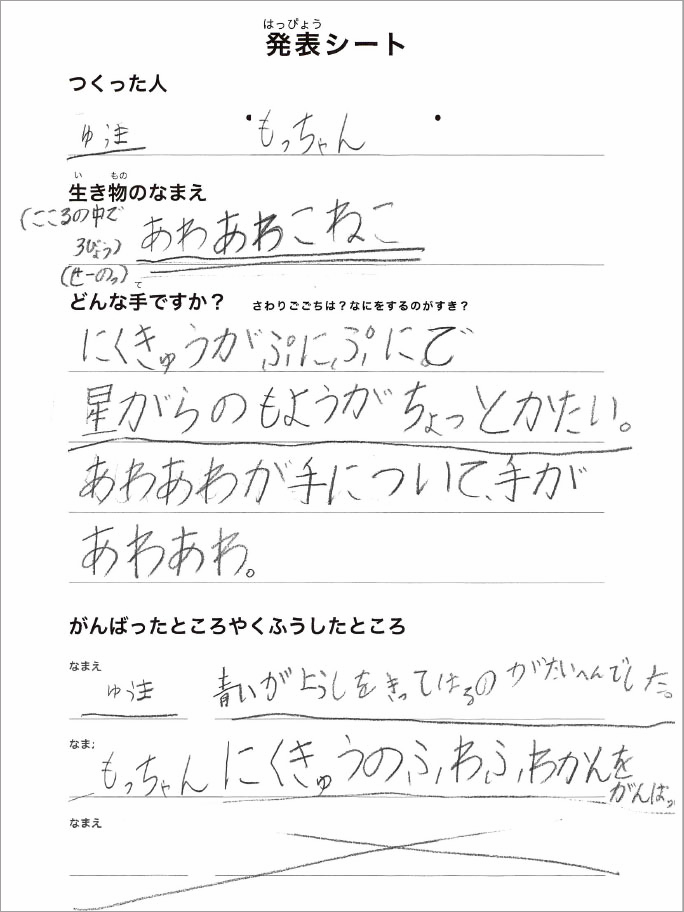 はっぴょう
発表シート
つくった人
ゆう
もっちゃん
い もの
生き物のなまえ
(こころの中で
3びょう)
(せーのっ)
あわあわこねこ
て
どんな手ですか？ さわりごごちは？なにをするのがすき？
にくきゅうがぷにぷにで
星がらのもようがちょっとかたい。
あわあわが手について、手が
あわあわ。
がんばったところやくふうしたところ
なまえ
ゆう
青いがようしをきってはるのがたいへんでした。
なま
もっちゃん
にくきゅうのふわふわかんを
がんばっ
なまえ